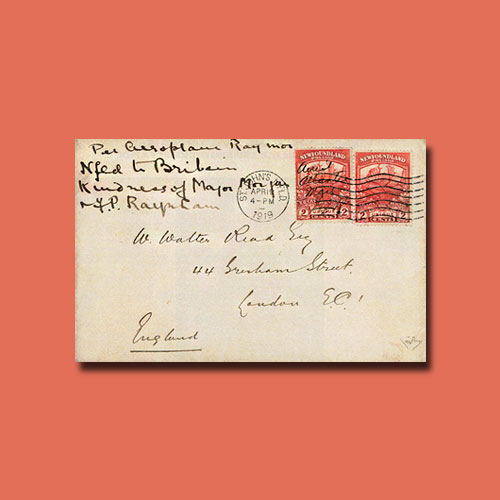 Per Aeroplane Raymor
Nfld to Britain
Kindness of Major Morgan
& F.P. Raynham
NEWFOUNDLAND
NEWFOUNDLAND
Aerial
Atlantic
2 2
2 CENTS 2
ST. JOHN'S NFLD.
APR 19
4-PM
1919
W. Walter Read Esq
44 Gresham Street.
London E.C.1
England